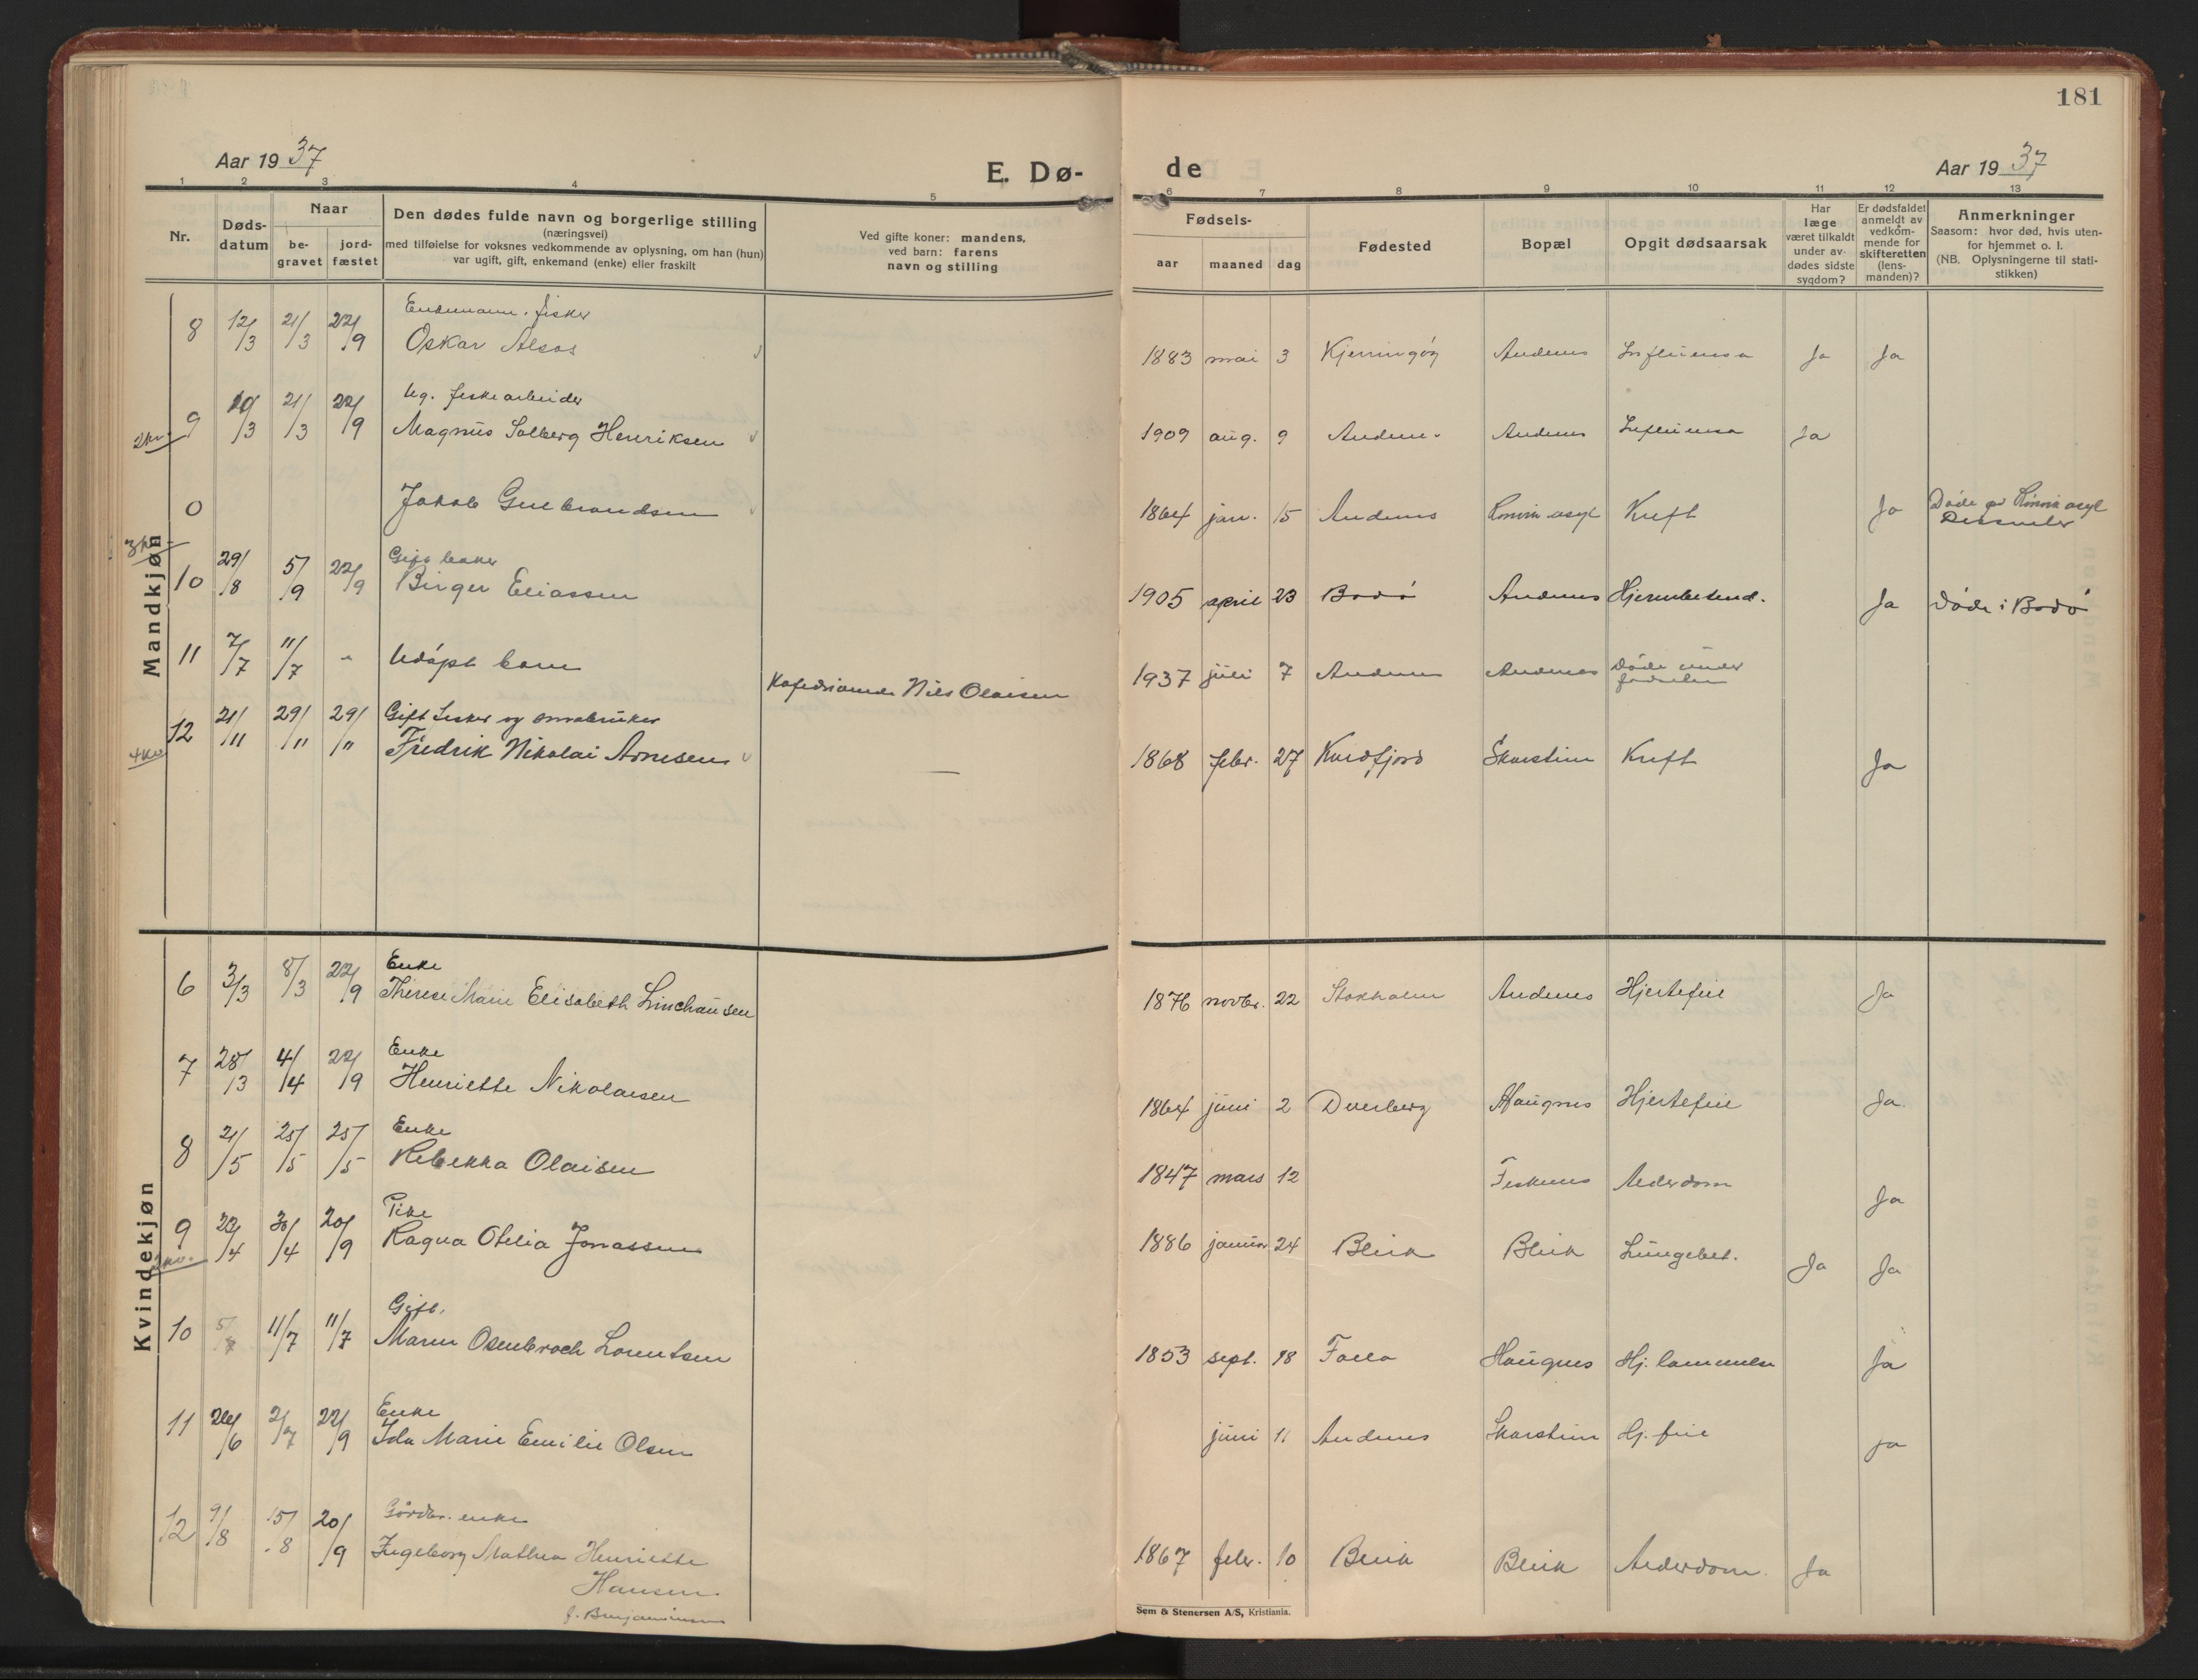 181
Aar 19 37
E. Dø-
de
Aar 19 37
1 2 3 4 5 6 7 8 9 10 11 12 13
Nr.
Døds-
datum
Naar
be-
gravet
jord-
fæstet
Den dødes fulde navn og borgerlige stilling
(næringsvei)
med tilføielse for voksnes vedkommende av oplysning, om han (hun)
var ugift, gift, enkemand (enke) eller fraskilt
Ved gifte koner: mandens,
ved barn: farens
navn og stilling
Fødsels-
aar maaned dag
Fødested
Bopæl
Opgit dødsaarsak
Har
læge
været tilkaldt
under av-
dødes sidste
sygdom?
Er dødsfaldet
anmeldt av
vedkom-
mende for
skifteretten
(lens-
manden)?
Anmerkninger
Saasom: hvor død, hvis uten-
for hjemmet o. l.
(NB. Oplysningerne til stati-
stikken)
Mandkjøn
Enkemann. fisker
8 12/3 21/3 22/9 Oskar Alsos 1883 mai 3 Kjerringøy Andenes Influensa Ja Ja
Ug. fiskearbeider
2kr. 9 19/3 21/3 22/9 Magnus Solberg Henriksen 1909 aug. 9 Andenes Andenes Influensa Ja
0 Jakob Gulbrandsen 1864 jan. 15 Andenes Rønvik asyl Kreft Ja Døde på Rønvik asyl
Gift baker
10 29/8 5/9 22/9 Birger Eliassen 1905 april 23 Bodø Andenes Hjernebetend. Ja Døde i Bodø
11 7/7 11/7 - Udøpt barn Nils Olaisen 1937 juli 7 Andenes Andenes Døde under
fødselen
Gift fisker og småbruker
4kr 12 21/11 29/11 29/11 Fredrik Nikolai Arnesen — 1868 febr. 27 Kvedfjord Skarstein Kreft Ja
Kvindekjøn
Enke
6 3/3 8/3 22/9 Therese Marie Elisabeth Linchausen 1876 novbr. 22 Stokholm Andenes Hjertefeil Ja
Enke
7 28/3 4/4 22/9 Henriette Nikolaisen 1864 juni 2 Dverberg Haugnes Hjertefeil Ja.
Enke
8 21/5 25/5 25/5 Rebekka Olaisen 1847 mars 12 Fiskenes Alderdom Ja
Pike
9 23/4 30/4 20/9 Ragna Otelia Jonassen 1886 januar 24 Bleik Bleik Lungebet. Ja Ja
2kr.
Gift.
10 5/7 11/7 11/7 Maren Osenbroch Lorentsen 1853 sept. 18 Haugnes Hj. lammelse Ja
Enke
11 26/6 2/7 22/9 Ida Marie Emilie Olsen juni 11 Andenes Skarstein Hj. feil ja
Gårdbr. enke
12 9/8 15/8 20/9 Ingeborg Mathea Henriette 1867 febr. 10 Bleik Bleik Alderdom. Ja
Hansen
f. Benjaminsen
Sem & Stenersen A/S, Kristiania.